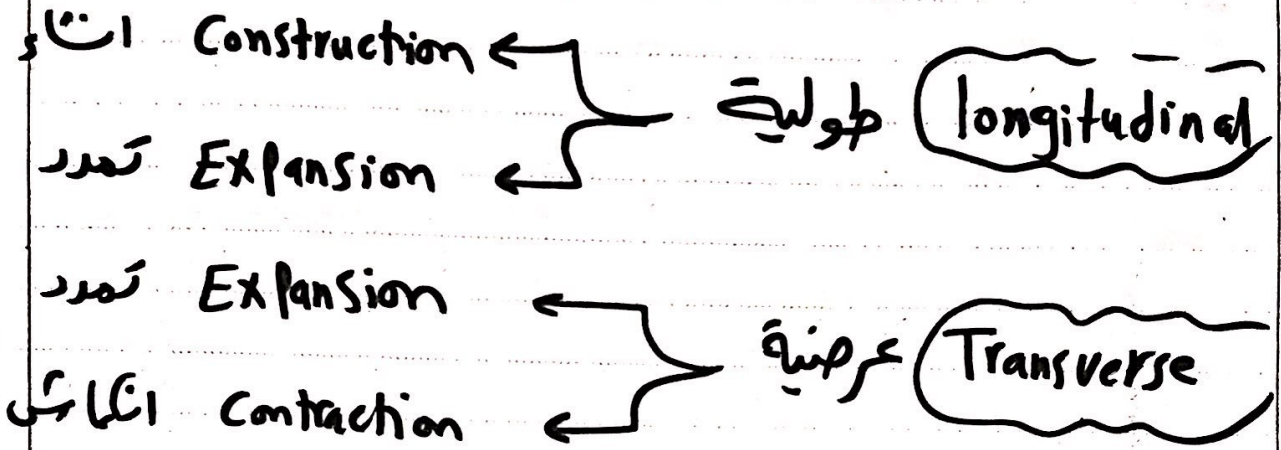 انشاء Construction
طولية longitudinal
تمدد Expansion
تمدد Expansion
عرضية Transverse
انكماش Contraction